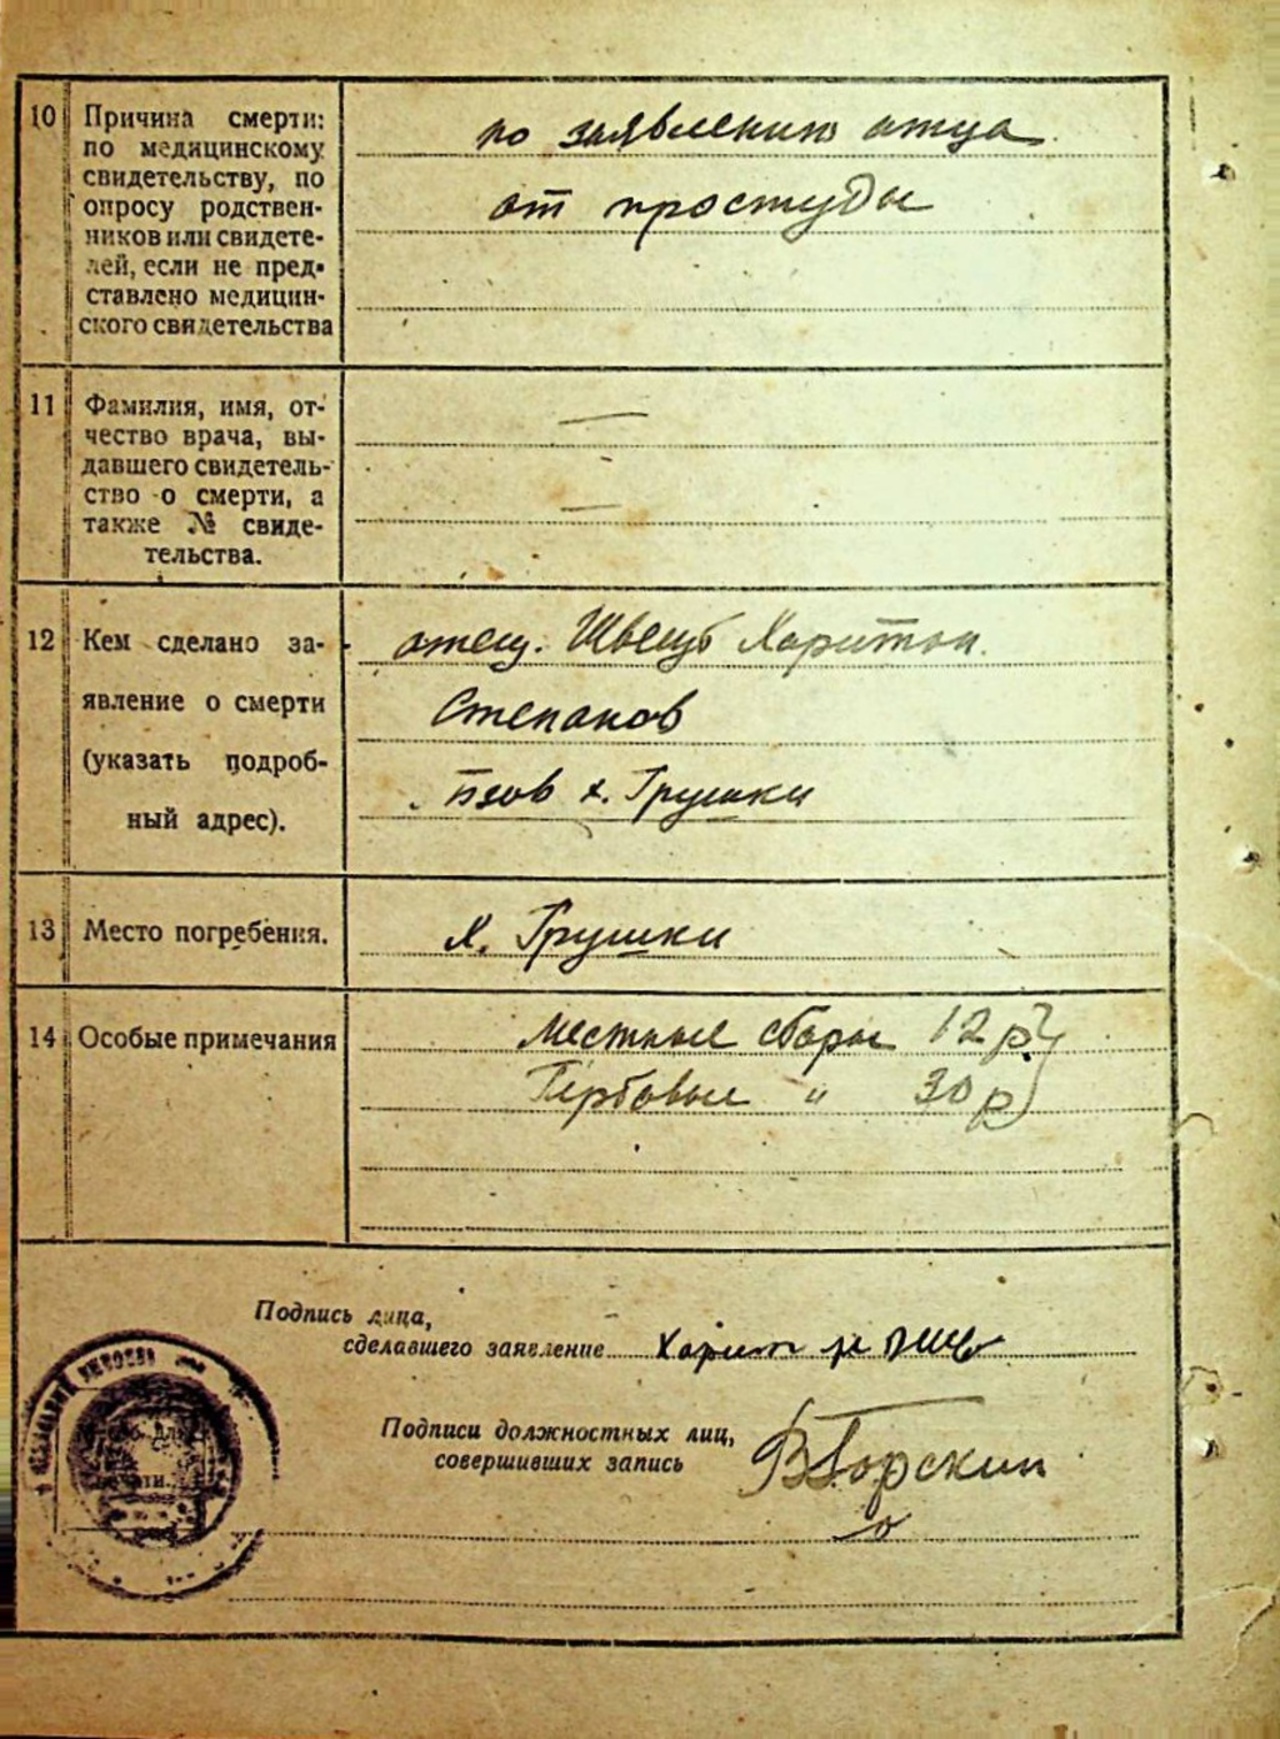 10 Причина смерти:
по медицинскому
свидетельству, по
опросу родствен-
ников или свидете-
лей, если не пред-
ставлено медицин-
ского свидетельства
по заявлению отца
от простуды
11 Фамилия, имя, от-
чество врача, вы-
давшего свидетель-
ство о смерти, а
также № свиде-
тельства.
—
—
12 Кем сделано за-
явление о смерти
(указать подроб-
ный адрес).
отец. Швец Харитон
Степанов
х. Грушки
13 Место погребения.
х. Грушки
14 Особые примечания
Местные сборы 12 р
Гербовые " 30 р
Подпись лица,
сделавшего заявление
Подписи должностных лиц,
совершивших запись